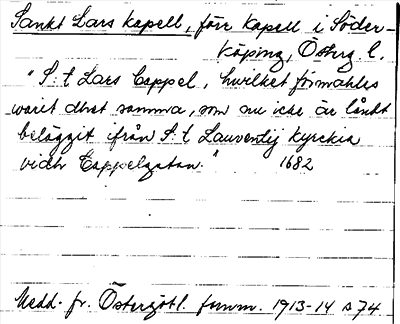 Sankt Lars kapell, förr kapell i Söder-
köping, Österg l.
"S:t Lars Cappel, hwilket förmahles
warit dhet samma, som nu icke är långt
beläggit ifrån S:t Lauventij kyrckia
vidh Cappelgatan." 1682
Medd. fr. Östergötl. fornm. 1913-14 s 74